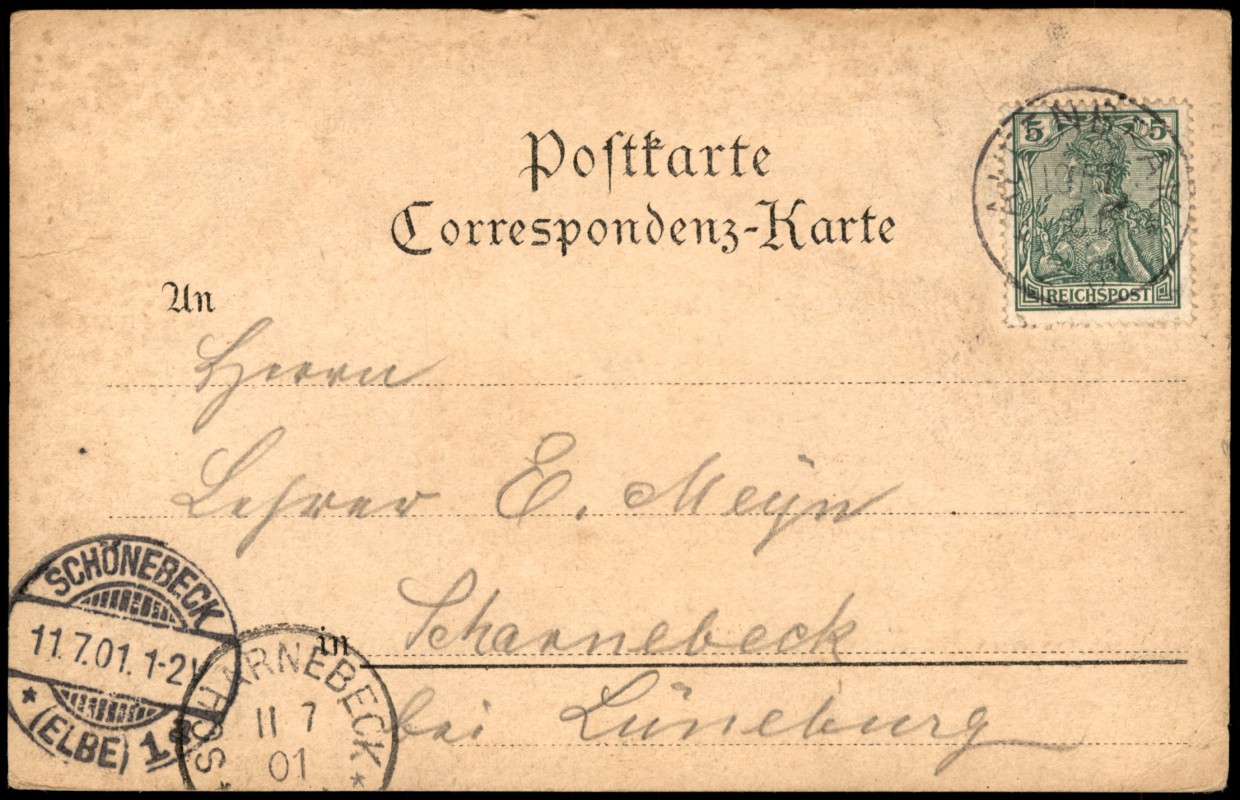 Postkarte
5 5
Correspondenz-Karte
REICHSPOST
An
Herrn
Lehrer E. Meyn
in Scharnebeck
bei Lüneburg
SCHÖNEBECK
11.7.01. 1-2V
* (ELBE)
SCHARNEBECK
11 7
01